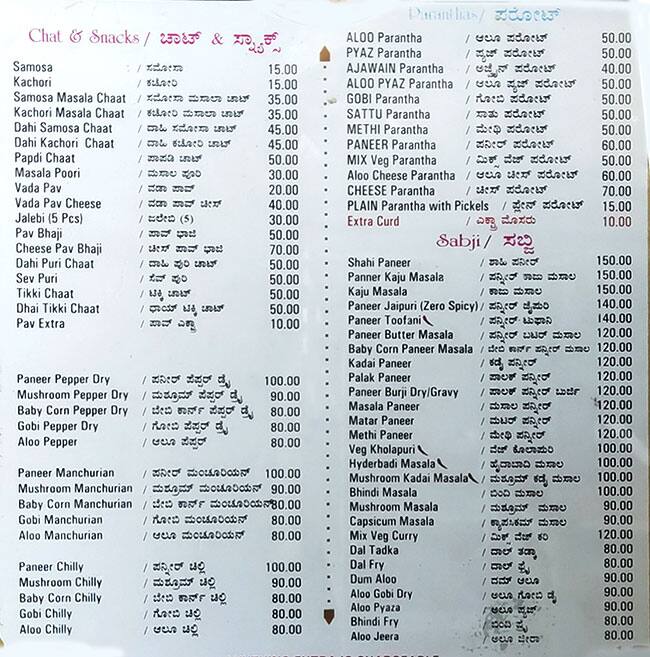 Chat & Snacks / ಚಾಟ್ & ಸ್ನ್ಯಾಕ್ಸ್
Samosa / ಸಮೋಸಾ 15.00
Kachori / ಕಚೋರಿ 15.00
Samosa Masala Chaat / ಸಮೋಸಾ ಮಸಾಲಾ ಚಾಟ್ 35.00
Kachori Masala Chaat / ಕಚೋರಿ ಮಸಾಲಾ ಚಾಟ್ 35.00
Dahi Samosa Chaat / ದಾಹಿ ಸಮೋಸಾ ಚಾಟ್ 45.00
Dahi Kachori Chaat / ದಾಹಿ ಕಚೋರಿ ಚಾಟ್ 45.00
Papdi Chaat / ಪಾಪಡಿ ಚಾಟ್ 50.00
Masala Poori / ಮಸಾಲ ಪೂರಿ 30.00
Vada Pav / ವಡಾ ಪಾವ್ 20.00
Vada Pav Cheese / ವಡಾ ಪಾವ್ ಚೀಸ್ 40.00
Jalebi (5 Pcs) / ಜಲೇಬಿ (5) 30.00
Pav Bhaji / ಪಾವ್ ಭಾಜಿ 50.00
Cheese Pav Bhaji / ಚೀಸ್ ಪಾವ್ ಭಾಜಿ 70.00
Dahi Puri Chaat / ದಾಹಿ ಪುರಿ ಚಾಟ್ 50.00
Sev Puri / ಸೆವ್ ಪುರಿ 50.00
Tikki Chaat / ಟಿಕ್ಕಿ ಚಾಟ್ 50.00
Dhai Tikki Chaat / ಧಾಯ್ ಟಿಕ್ಕಿ ಚಾಟ್ 50.00
Pav Extra / ಪಾವ್ ಎಕ್ಟ್ರಾ 10.00
Paneer Pepper Dry / ಪನೀರ್ ಪೆಪ್ಪರ್ ಡ್ರೈ 100.00
Mushroom Pepper Dry / ಮಶ್ರೂಮ್ ಪೆಪ್ಪರ್ ಡ್ರೈ 90.00
Baby Corn Pepper Dry / ಬೇಬಿ ಕಾರ್ನ್ ಪೆಪ್ಪರ್ ಡ್ರೈ 80.00
Gobi Pepper Dry / ಗೋಬಿ ಪೆಪ್ಪರ್ ಡ್ರೈ 80.00
Aloo Pepper / ಆಲೂ ಪೆಪ್ಪರ್ 80.00
Paneer Manchurian / ಪನೀರ್ ಮಂಚೂರಿಯನ್ 100.00
Mushroom Manchurian / ಮಶ್ರೂಮ್ ಮಂಚೂರಿಯನ್ 90.00
Baby Corn Manchurian / ಬೇಬಿ ಕಾರ್ನ್ ಮಂಚೂರಿಯನ್ 80.00
Gobi Manchurian / ಗೋಬಿ ಮಂಚೂರಿಯನ್ 80.00
Aloo Manchurian / ಆಲೂ ಮಂಚೂರಿಯನ್ 80.00
Paneer Chilly / ಪನ್ನೀರ್ ಚಿಲ್ಲಿ 100.00
Mushroom Chilly / ಮಶ್ರೂಮ್ ಚಿಲ್ಲಿ 90.00
Baby Corn Chilly / ಬೇಬಿ ಕಾರ್ನ್ ಚಿಲ್ಲಿ 80.00
Gobi Chilly / ಗೋಬಿ ಚಿಲ್ಲಿ 80.00
Aloo Chilly / ಆಲೂ ಚಿಲ್ಲಿ 80.00
Paranthas / ಪರೋಟ್
ALOO Parantha / ಆಲೂ ಪರೋಟ್ 50.00
PYAZ Parantha / ಪ್ಯಜ್ ಪರೋಟ್ 50.00
AJAWAIN Parantha / ಅಜ್ವೈನ್ ಪರೋಟ್ 40.00
ALOO PYAZ Parantha / ಆಲೂ ಪ್ಯಜ್ ಪರೋಟ್ 50.00
GOBI Parantha / ಗೋಬಿ ಪರೋಟ್ 50.00
SATTU Parantha / ಸಾತು ಪರೋಟ್ 50.00
METHI Parantha / ಮೇಥಿ ಪರೋಟ್ 50.00
PANEER Parantha / ಪನೀರ್ ಪರೋಟ್ 60.00
MIX Veg Parantha / ಮಿಕ್ಸ್ ವೆಜ್ ಪರೋಟ್ 60.00
Aloo Cheese Parantha / ಆಲೂ ಚೀಸ್ ಪರೋಟ್ 60.00
CHEESE Parantha / ಚೀಸ್ ಪರೋಟ್ 70.00
PLAIN Parantha with Pickels / ಪ್ಲೇನ್ ಪರೋಟ್ 15.00
Extra Curd / ಎಕ್ತ್ರಾ ಮೊಸರು 10.00
Sabji / ಸಬ್ಜಿ
Shahi Paneer / ಶಾಹಿ ಪನೀರ್ 150.00
Panner Kaju Masala / ಪನ್ನೀರ್ ಕಾಜು ಮಸಾಲ 150.00
Kaju Masala / ಕಾಜು ಮಸಾಲ 150.00
Paneer Jaipuri (Zero Spicy) / ಪನ್ನೀರ್ ಜೈಪುರಿ 140.00
Paneer Toofani / ಪನ್ನೀರ್ ಟುಫಾನಿ 140.00
Paneer Butter Masala / ಪನ್ನೀರ್ ಬಟರ್ ಮಸಾಲ 120.00
Baby Corn Paneer Masala / ಬೇಬಿ ಕಾರ್ನ್ ಪನ್ನೀರ್ ಮಸಾಲ 120.00
Kadai Paneer / ಕಡೈ ಪನ್ನೀರ್ 120.00
Palak Paneer / ಪಾಲಕ್ ಪನ್ನೀರ್ 120.00
Paneer Burji Dry/Gravy / ಪಾಲಕ್ ಪನ್ನೀರ್ ಬುರ್ಜಿ 120.00
Masala Paneer / ಮಸಾಲ ಪನ್ನೀರ್ 120.00
Matar Paneer / ಮಟರ್ ಪನ್ನೀರ್ 120.00
Methi Paneer / ಮೇಥಿ ಪನ್ನೀರ್ 120.00
Veg Kholapuri / ವೆಜ್ ಕೊಲಾಪುರಿ 100.00
Hyderbadi Masala / ಹೈದಾಬಾದಿ ಮಸಾಲ 100.00
Mushroom Kadai Masala / ಮಶ್ರೂಮ್ ಕಡೈ ಮಸಾಲ 100.00
Bhindi Masala / ಬಿಂದಿ ಮಸಾಲ 100.00
Mushroom Masala / ಮಶ್ರೂಮ್ ಮಸಾಲ 90.00
Capsicum Masala / ಕ್ಯಾಪಸಿಕಮ್ ಮಸಾಲ 90.00
Mix Veg Curry / ಮಿಕ್ಸ್ ವೆಜ್ ಕರಿ 120.00
Dal Tadka / ದಾಲ್ ತಡ್ಕಾ 80.00
Dal Fry / ದಾಲ್ ಫ್ರೈ 80.00
Dum Aloo / ದಮ್ ಆಲೂ 90.00
Aloo Gobi Dry / ಅಲೂ ಗೋಬಿ ಡೈ 90.00
Aloo Pyaza / ಅಲೂ ಪ್ಯಜ್ 80.00
Bhindi Fry / ಬಿಂದಿ ಫ್ರೈ 80.00
Aloo Jeera / ಅಲೂ ಜೀರಾ 80.00